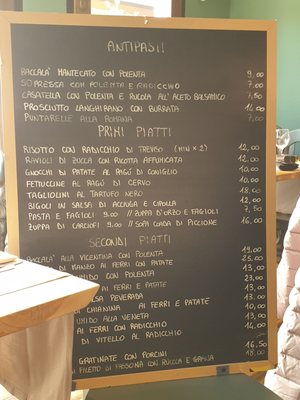 ANTIPASTI
BACCALA' MANTECATO CON POLENTA 9,00
SOPRESSA CON POLENTA E RADICCHIO 7,00
CASATELLA CON POLENTA E RUCOLA ALL' ACETO BALSAMICO 7,50
PROSCIUTTO LANGHIRANO CON BURRATA 14,00
PUNTARELLE ALLA ROMANA 7,00
PRIMI PIATTI
RISOTTO CON RADICCHIO DI TREVISO (MIN X 2) 12,00
RAVIOLI DI ZUCCA CON RICOTTA AFFUMICATA 12,00
GNOCCHI DI PATATE AL RAGÙ DI CONIGLIO 10,00
FETTUCCINE AL RAGÙ DI CERVO 10,00
TAGLIOLINI AL TARTUFO NERO 18,00
BIGOLI IN SALSA DI ACCIUGA E CIPOLLA 12,00
PASTA E FAGIOLI 9,00 // ZUPPA D'ORZO E FAGIOLI 7,50
ZUPPA DI CARCIOFI 9,00 // SOPA COADA DI PICCIONE 16,00
SECONDI PIATTI
BACCALA' ALLA VICENTINA CON POLENTA 19,00
DI MANZO AI FERRI CON PATATE 25,00
UMIDO CON POLENTA 13,00
AI FERRI E PATATE 23,00
SALSA PEVERADA 13,00
DI CHIANINA AI FERRI E PATATE 13,00
UMIDO ALLA VENETA 10,00
AI FERRI CON RADICCHIO 13,00
DI VITELLO AL RADICCHIO 14,00
GRATINATE CON PORCINI 16,50
FILETTO DI FASSONA CON RUCOLA E GRANA 18,00